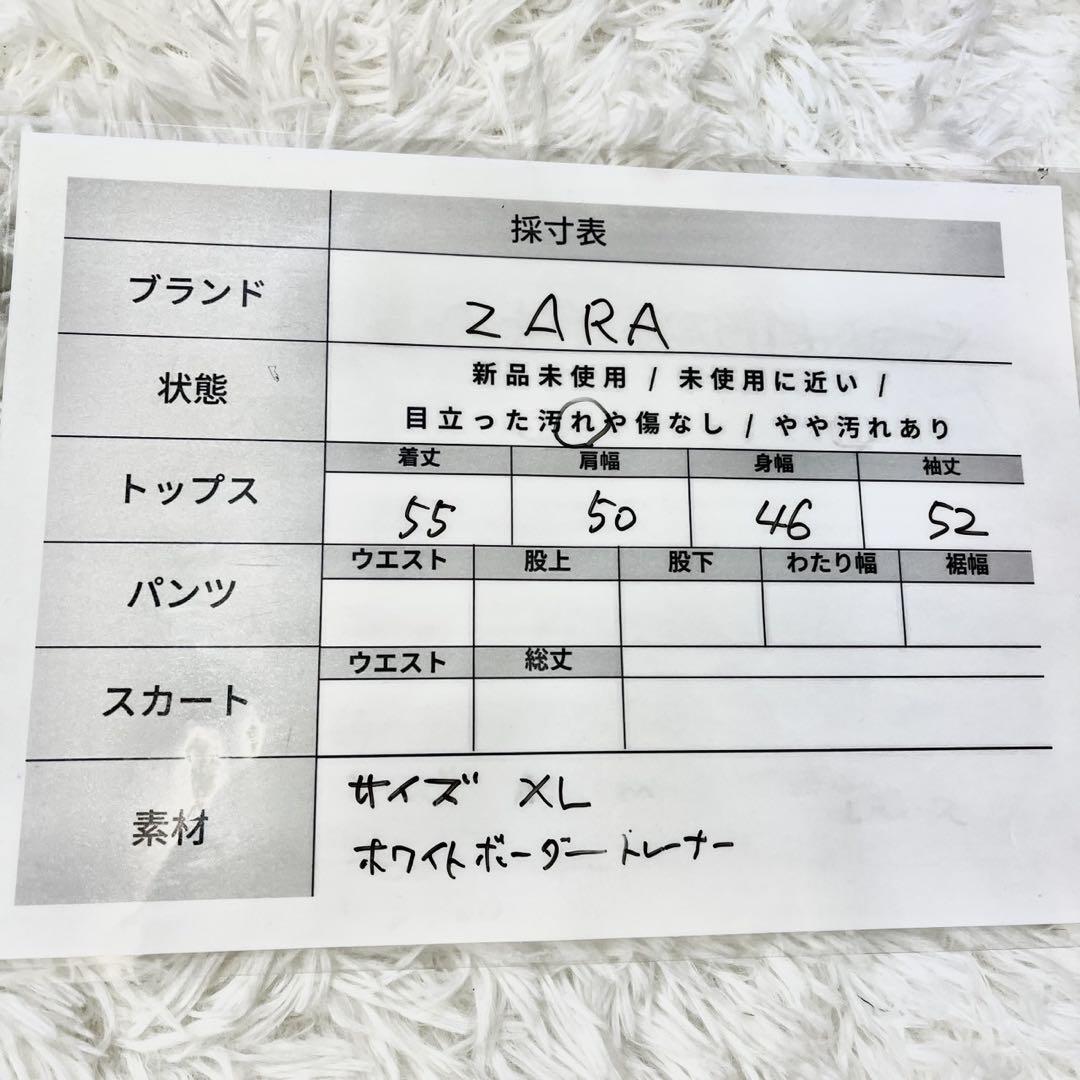 採寸表
ブランド
ZARA
状態
新品未使用 / 未使用に近い /
目立った汚れや傷なし / やや汚れあり
トップス
着丈 肩幅 身幅 袖丈
55 50 46 52
パンツ
ウエスト 股上 股下 わたり幅 裾幅
スカート
ウエスト 総丈
素材
サイズ XL
ホワイトボーダートレーナー